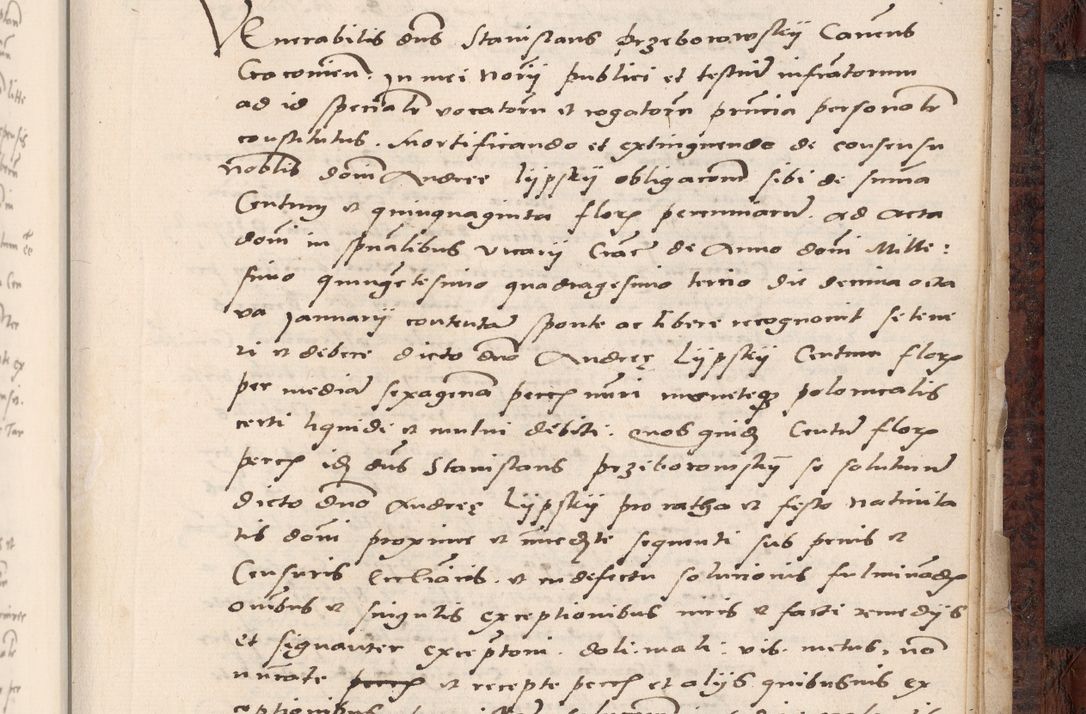 Venerabilis dns Stanislaus Przeborowskij Canons
Cracovien. In mei Norij publici et testiu infratorum
ad id specialr vocatoru et rogatoru pncia personalr
constitutus. Mortificando et extinguendo de consensu
Noblis domi Andreę Lijpskij obligaconi sibi de suma
Centum et quinquaginta flor pecuniaru ad Acta
domi in spualibus vicarij Crac de Anno domi Mille:
simo quingetesimo quadragesimo tercio die decima octa
va Januarij contenta sponte ac libere recognovit se tene
ri et debere dicto dno Andreę Lijpskij Centum flor
per media sexagena pecc nuri monetęq polonicalis
certi liquidi et mutui debiti. Quos quid Centu flor
pecc id dns Stanislaus Przeborowskij se soluturu
dicto dno Andreę Lijpskij pro ratha et festo Nativita
tis domi proxime et imediate sequenti sub penis et
Censuris Eccliacis. et in defectu solucionis fulminad
omibus et singulis exceptionibus iuris et facti remedijs
et signanter exceptoni. doli. mali. vis. metus. no
nurate pecc et recepte pecc et alijs quibusuis ex